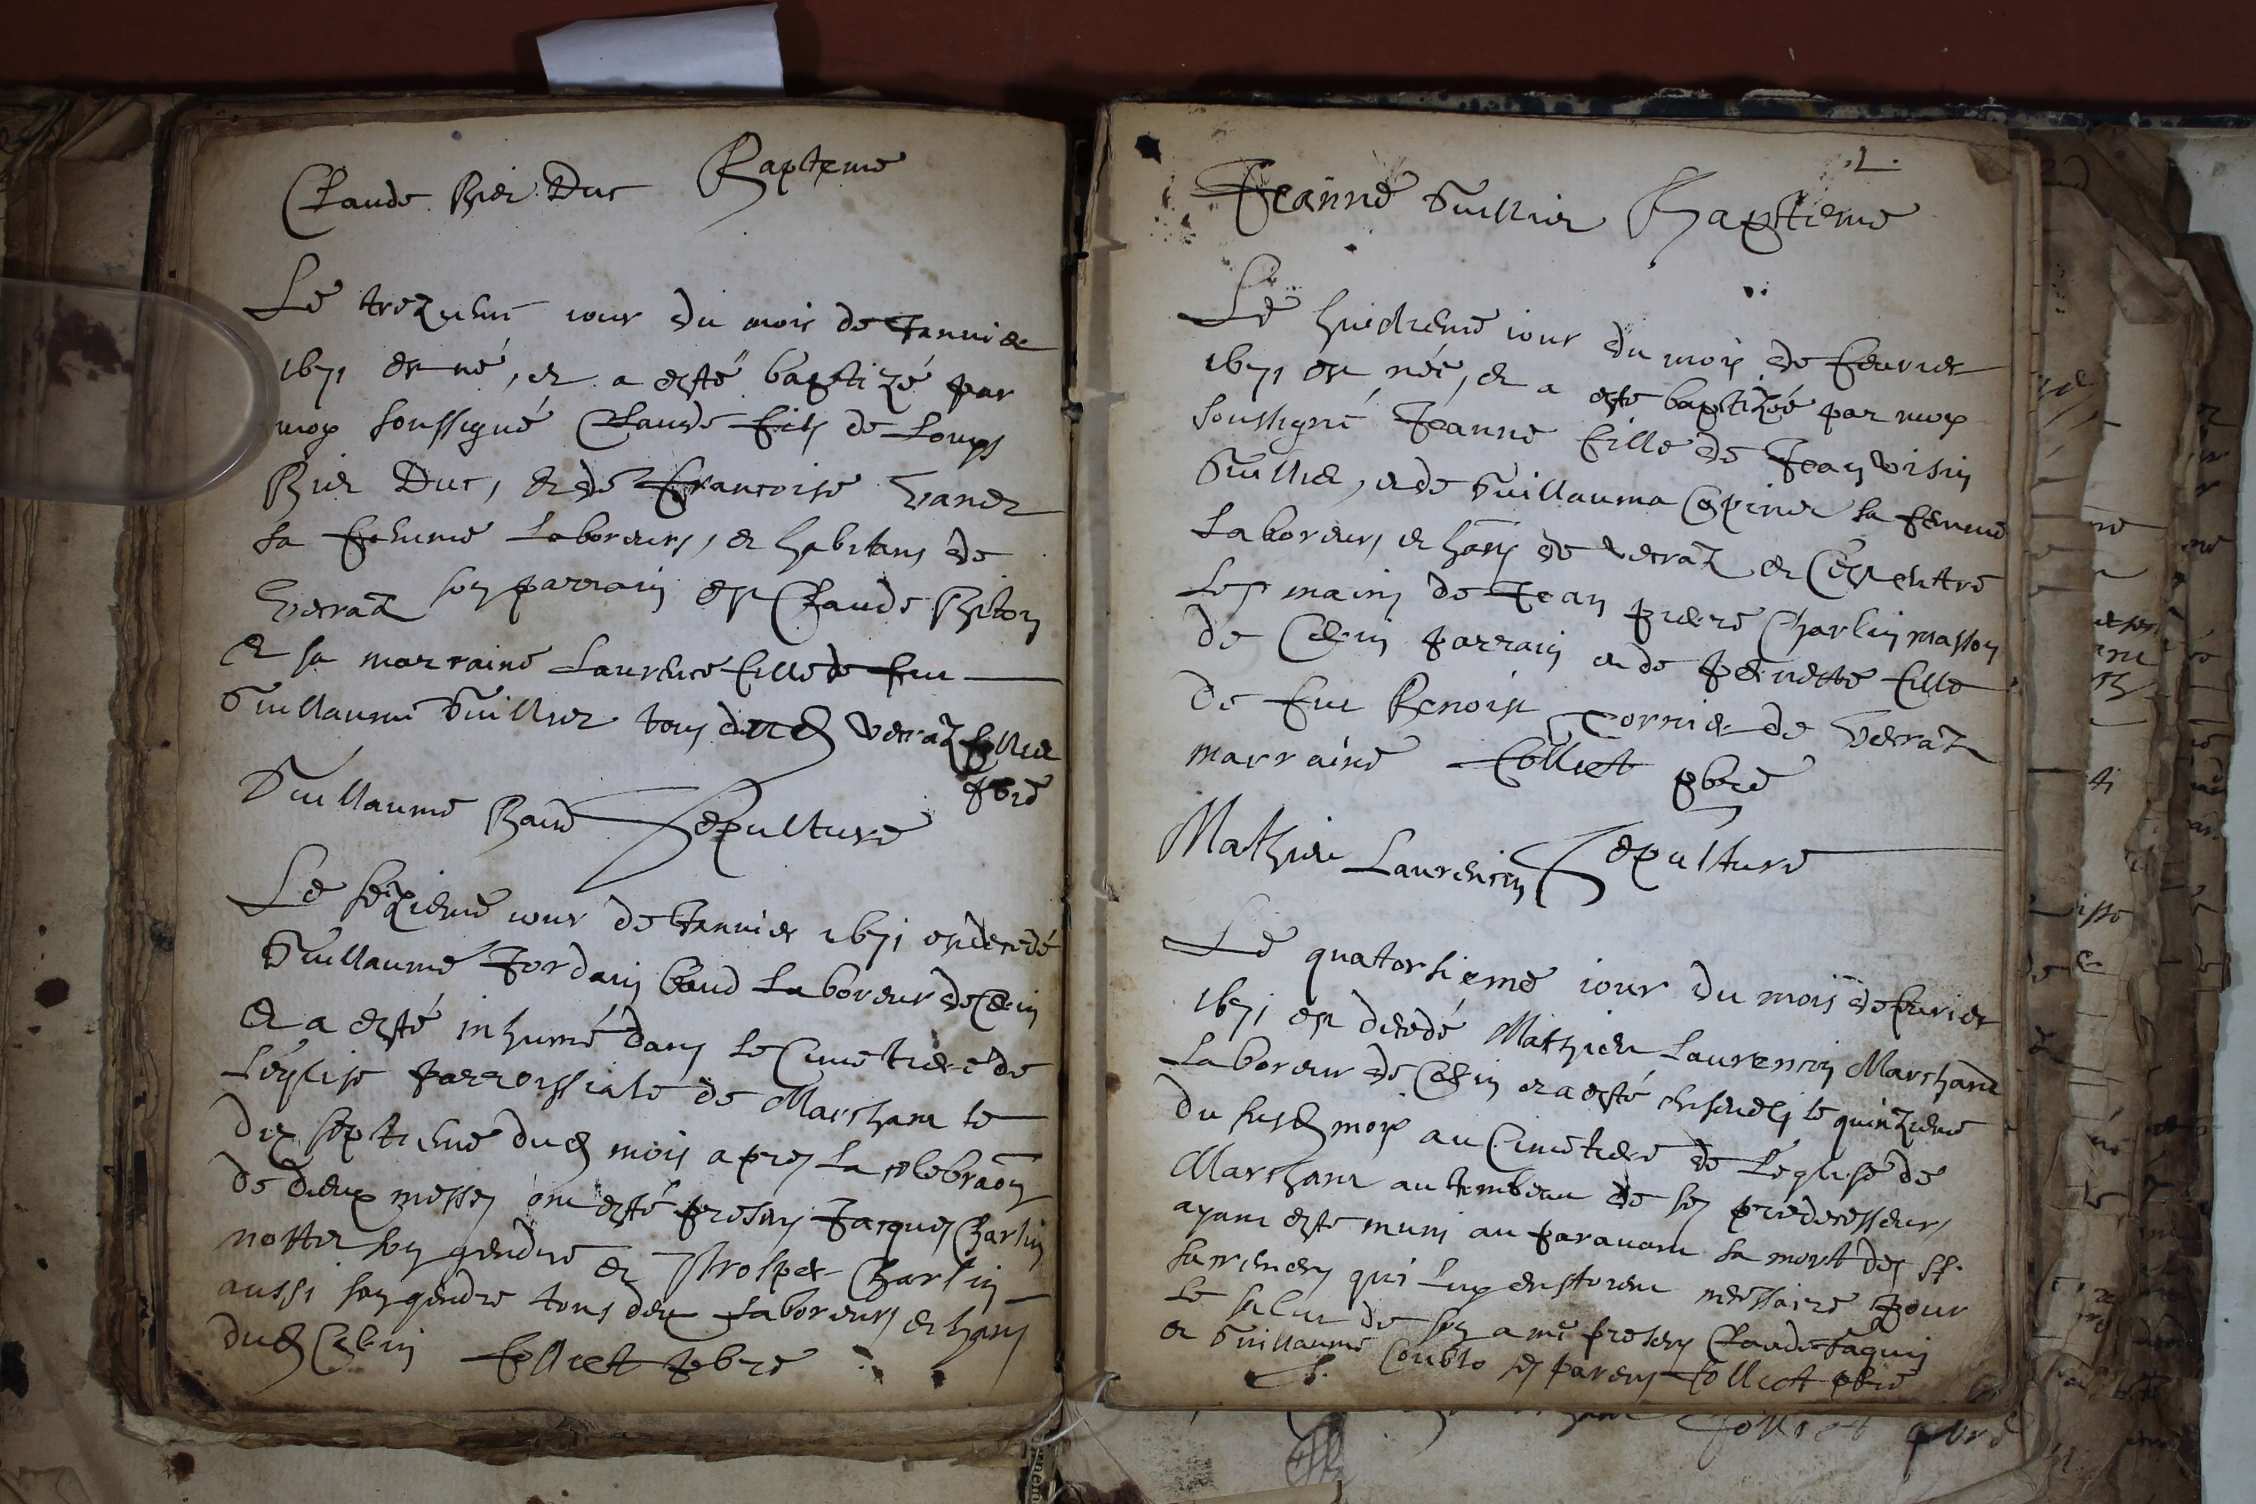 Claude Bier Duc Bapteme
Le trezieme iour du mois de Janvier
1671 est né, et a esté baptizé par
moy soussigné Claude fils de Louys
Bier Duc, et de Francoise
sa femme Laboreurs, et habitans de
Verraz son parrain est Claude Biton
et sa marraine Laurence fille de feu
Guillaume Guillier tous dud Verraz Folliet
pbre
Guillaume Baud Sepulture
Le sezieme iour de Janvier 1671 est decedé
Guillaume Jordain Baud Laboreur de
et a esté inhumé dans le Cimetiere de
Leglise parroissiale de Marchant le
dix septieme dud mois apres la celebraon
de deux messes ont esté presens Jacques Charlin
son gendre et Prosper Charlin
aussi son gendre tous deux Laboreurs et hans
dud Folliet pbre
2.
Jeanne Guillier Baptieme
Le huictieme iour du mois de Feuvrier
1671 est née, et a esté baptizée par moy
soussigné Jeanne fille de Jean voisin
Guillier, et de Guillauma sa femme
Laboreurs et hans de verraz et entre
les mains de Jean pierre Charlin masson
de parrain et de pernette fille
de feu Benoist Cornier de Verraz
marraine Folliet pbre
Mathieu Laurencin Sepulture
Le quatorsieme iour du mois de fevrier
1671 est decedé Mathieu Laurencin Marchant
Laboreur de et a esté enseveli le quinzieme
du susd mois au Cimetiere de Leglise de
Marchant au tombeau de ses predecesseurs
ayant esté muni au paravant sa mort des sts
sacremens qui luy estoient necessaire pour
le salut de son ame presens Claude Jaquin
et Guillaume ses parens Folliet pbre